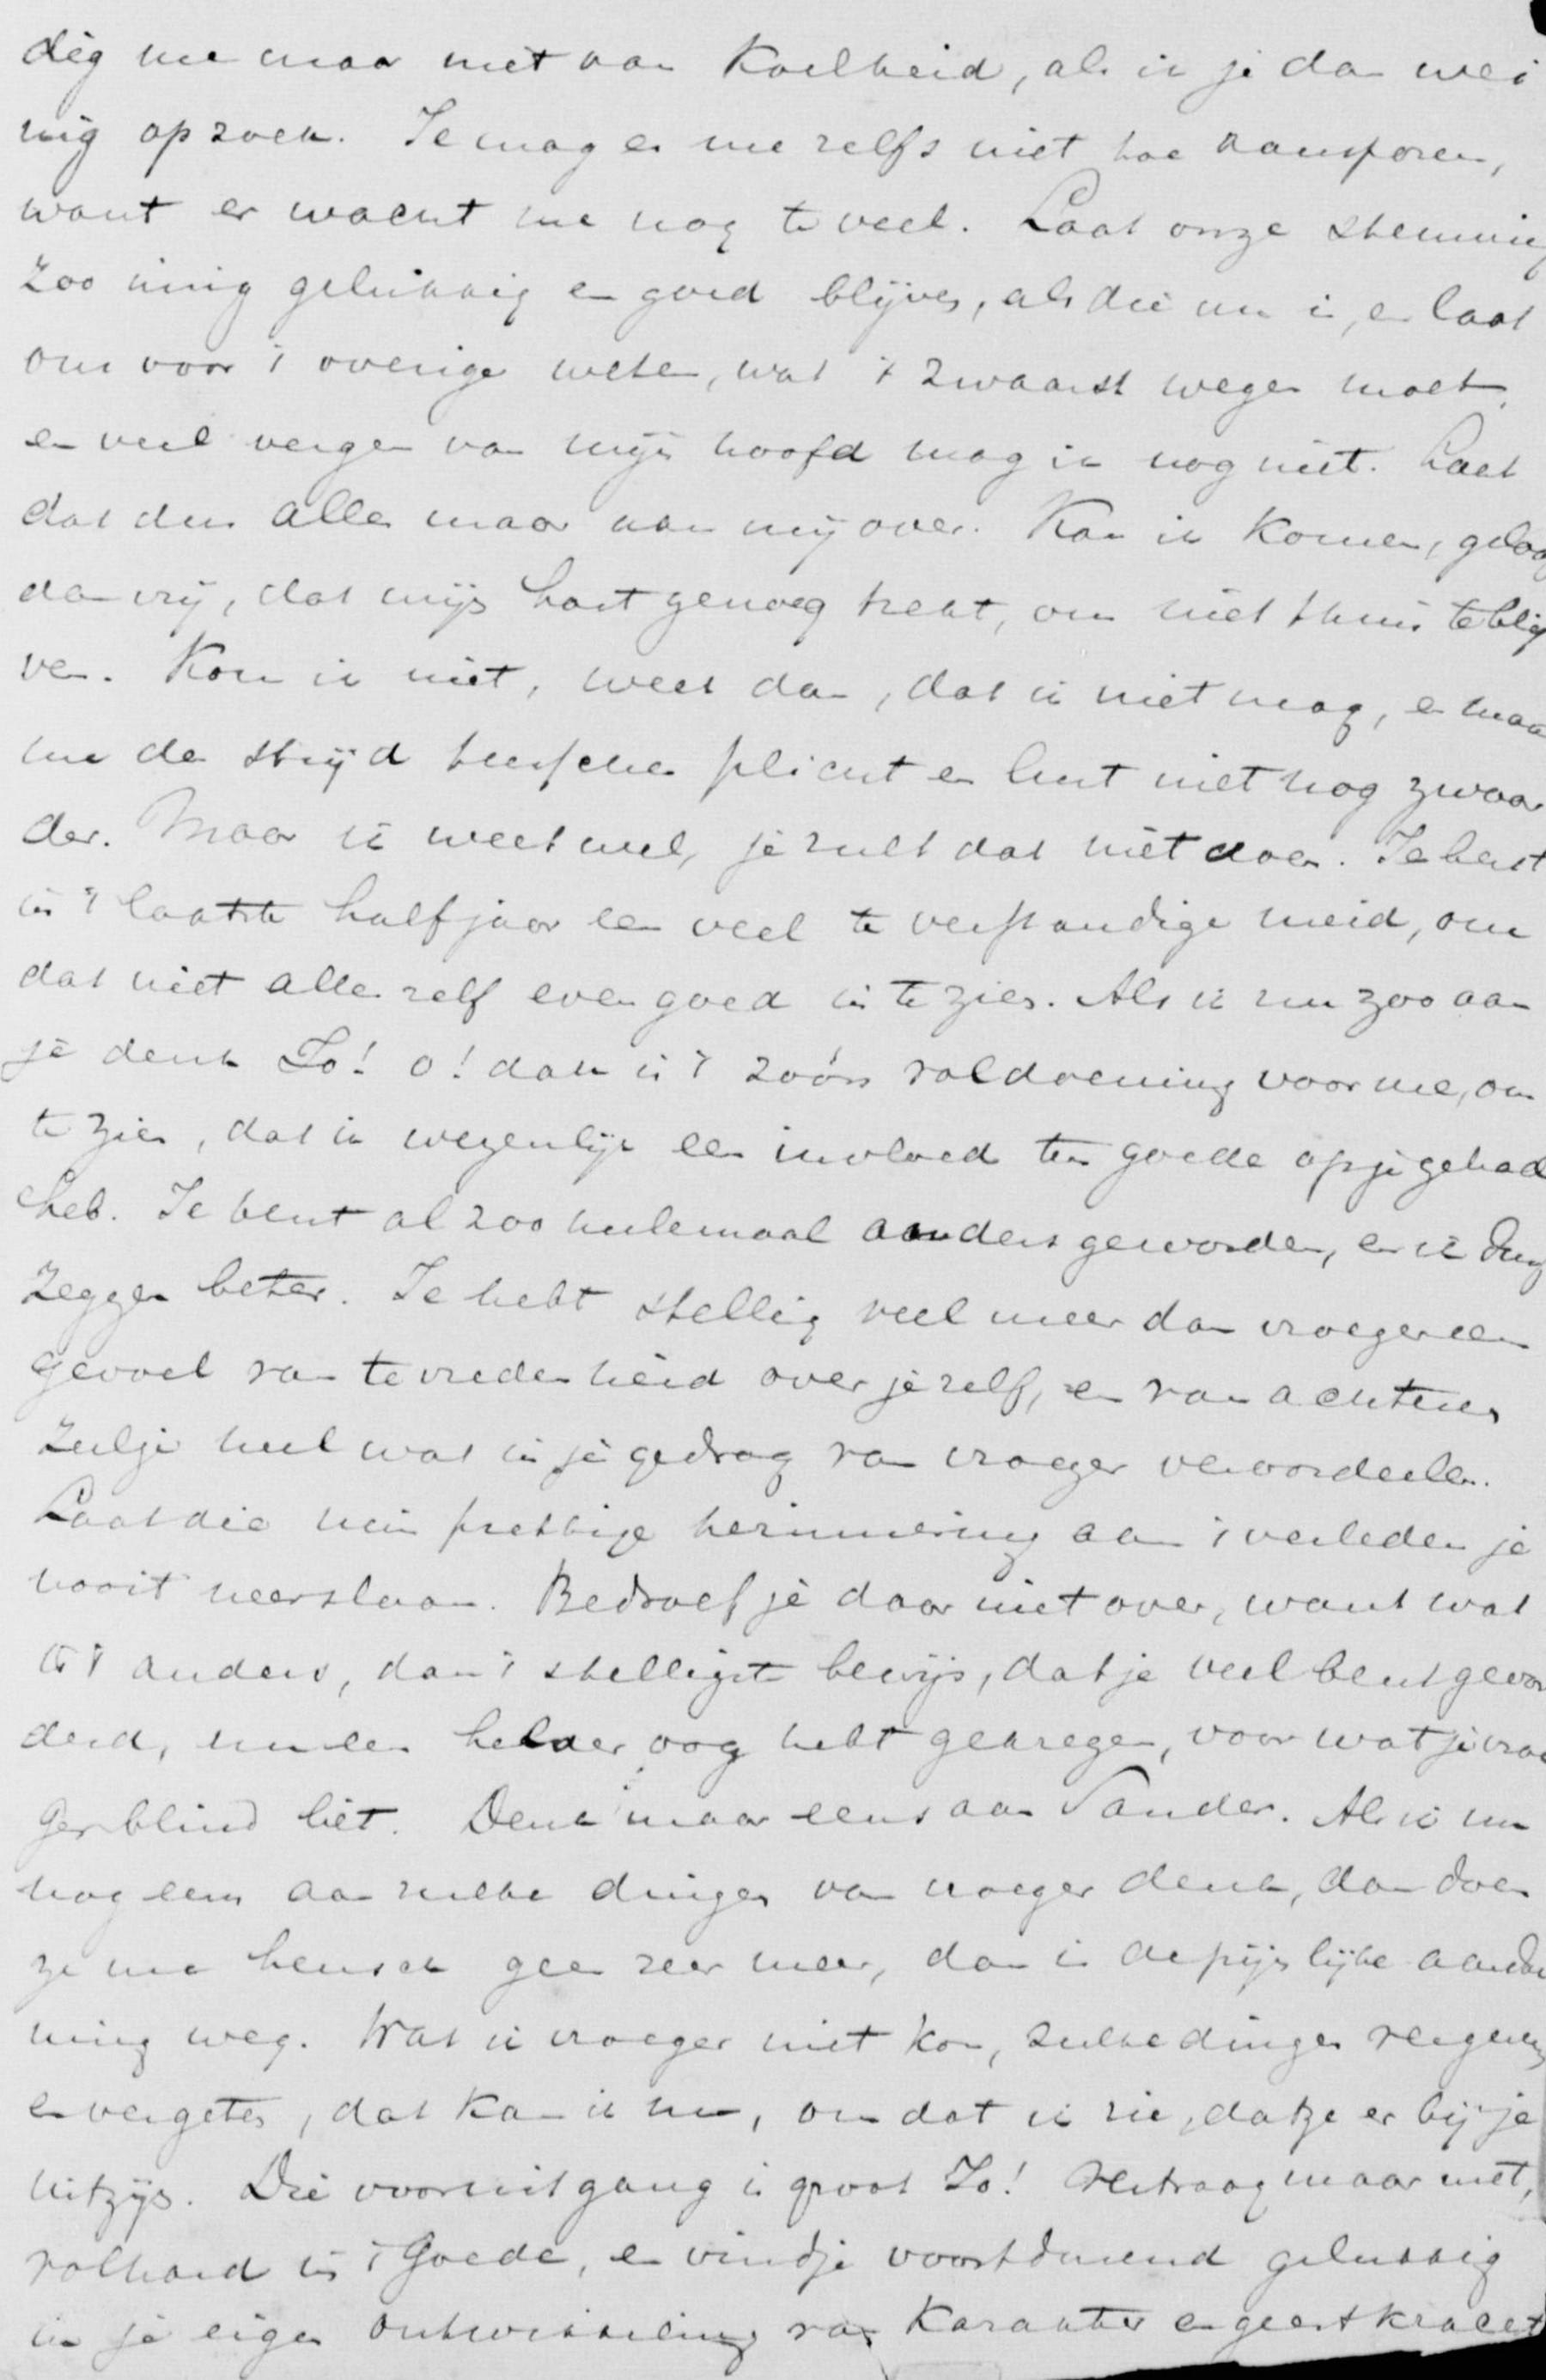 dig me maar niet van Koelheid, als ik je dan wei
nig opzoek. Je mag er me zelfs niet toe aansporen,
want er wacht me nog te veel. Laat onze stemming
zoo innig gelukkig en goed blijven, als die nu is, en laat
ons voor 't overige weten, wat 't zwaarst wegen moet,
en veel vergen van mijn hoofd mag ik nog niet. Laat
dat dus alles maar aan mij over. Kan ik Komen, geloof
dan vrij, dat mijn hart genoeg trekt, om niet thuis te blij
ven. Kom ik niet, weet dan, dat ik niet mag, en maak
me den strijd tusschen plicht en lust niet nog zwaar
der. Maar ik weet wel, je zult dat niet doen. Je bent
in 't laatste halfjaar een veel te verstandige meid, om
dat niet alles zelf even goed in te zien. Als ik nu zoo aan
je denk Jo! o! dan is 't zóó'n voldoening voor me, om
te zien, dat ik wezenlijk een invloed ten goede op je gehad
heb. Je bent al zoo heelemaal anders geworden, en ik durf
zeggen beter. Je hebt stellig veel meer dan vroeger een
gevoel van tevredenheid over je zelf, en van achteren
zul je heel wat in je gedrag van vroeger veroordeelen.
Laat die min prettige herinnering aan 't verleden je
nooit neerslaan. Bedroef je daar niet over, want wat
is 't anders, dan 't stelligste bewijs, dat je veel bent gevor
derd, nu een helder oog hebt gekregen, voor wat je vroe
ger blind liet. Denk maar eens aan Sander. Als ik nu
nog eens aan zulke dingen van vroeger denk, dan doen
ze me heusch geen zeer meer, dan is de pijnlijke aandoe
ning weg. Wat ik vroeger niet kon, zulke dingen vergeven
en vergeten, dat Kan ik nu, omdat ik zie, dat ze er bij je
uitzijn. Die vooruitgang is groot Jo! Vertraag maar niet,
volhard in 't Goede, en vind je voortdurend gelukkig
in je eigen ontwikkeling van Karakter en geestkracht